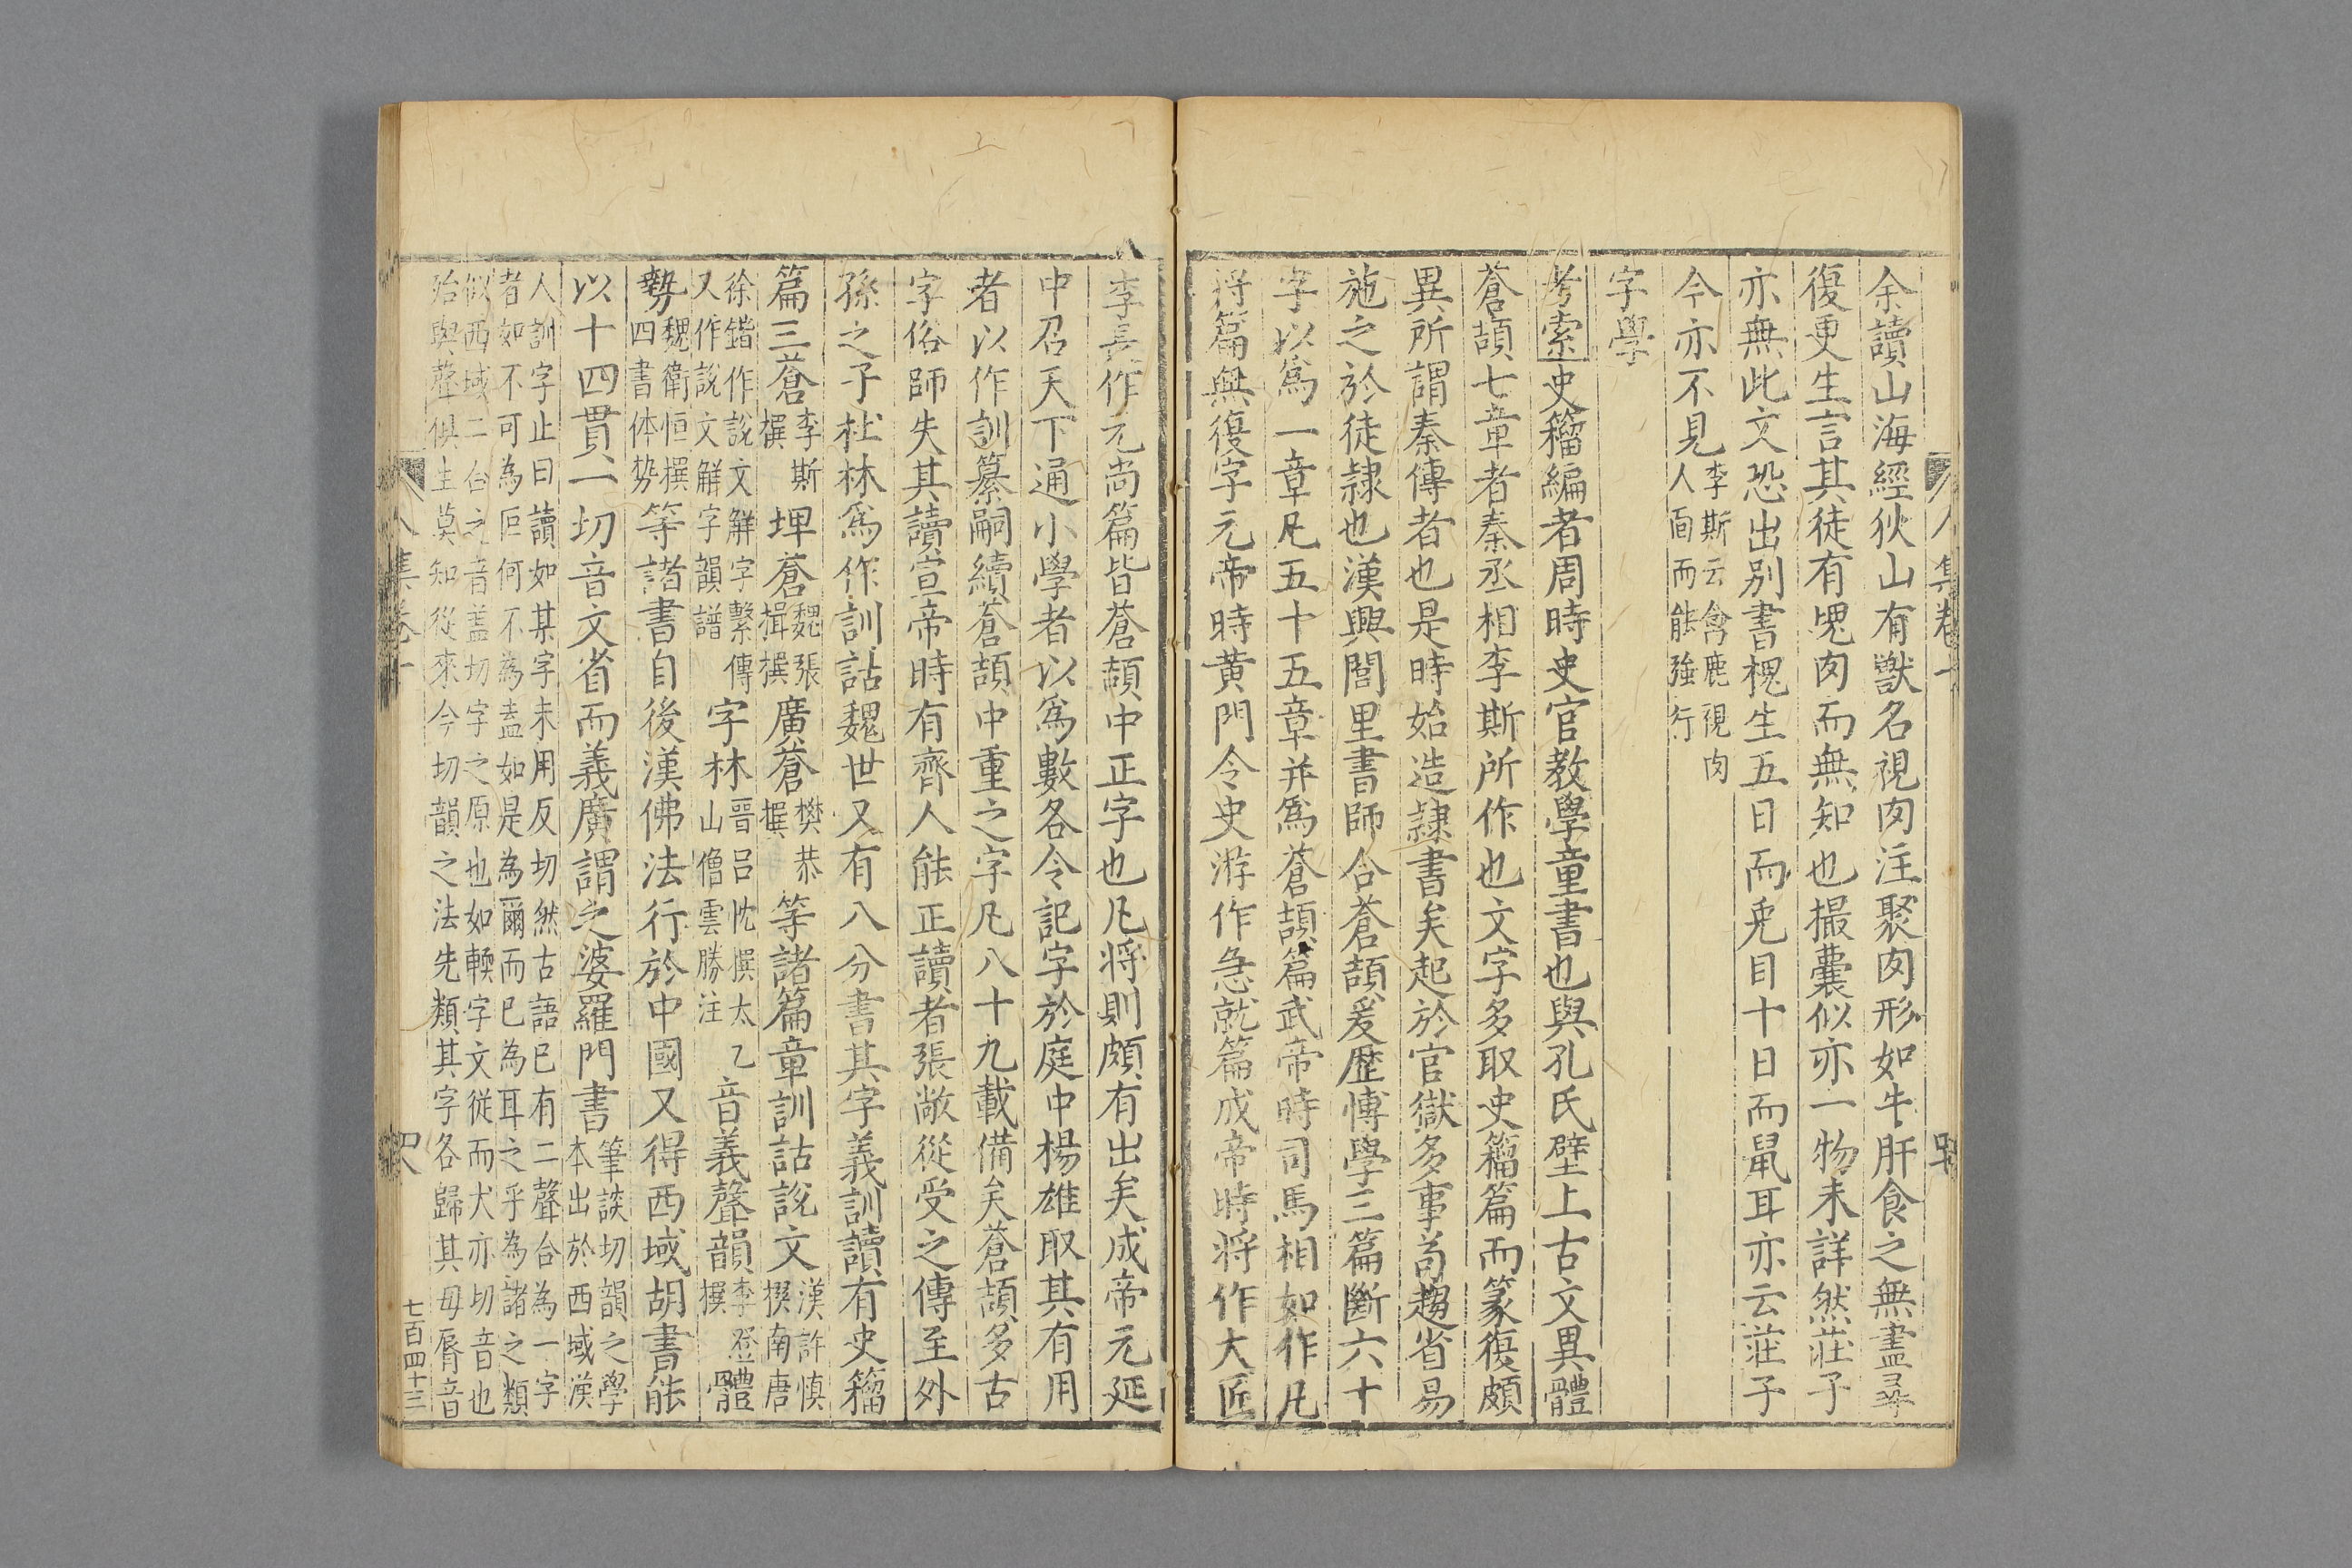 余讀山海經狄山有獸名視肉注聚肉形如牛肝食之無盡尋
復更生言其徒有塊肉而無知也撮囊似亦一物未詳然莊子
亦無此文恐出別書槐生五日而兎目十日而鼠耳亦云莊子
今亦不見李斯云禽鹿視肉
人面而能強行
字學
考索史籀編者周時史官教學童書也與孔氏壁上古文異體
蒼頡七章者秦丞相李斯所作也文字多取史籀篇而篆復頗
異所謂秦傳者也是時始造隷書矣起於官獄多事苟趨省易
施之於徒隷也漢興閭里書師合蒼頡爰歷博學三篇斷六十
字以爲一章凡五十五章并爲蒼頡篇武帝時司馬相如作凡
将篇無復字元帝時黄門令史游作急就篇成帝時将作大匠
李長作元尚篇皆蒼頡中正字也凡将則頗有出矣成帝元延
中召天下通小學者以爲數各令記字於庭中楊雄取其有用
者以作訓纂嗣續蒼頡中重之字凡八十九載備矣蒼頡多古
字俗師失其讀宣帝時有齊人能正讀者張敞從受之傳至外
孫之子杜林爲作訓詁魏世又有八分書其字義訓讀有史籀
篇三蒼李斯撰埤蒼魏張揖撰廣蒼樊恭撰等諸篇章訓詁說文漢許慎撰南唐
徐鍇作說文觧字繫傳又作說文觧字韻譜字林晉呂忱撰太乙山僧雲勝注音義聲韻李登撰體
勢魏衛恒撰四書体㔟等諸書自後漢佛法行於中國又得西域胡書能
以十四貫一切音文省而義廣謂之婆羅門書筆談切韻之學本出於西域漢
人訓字止曰讀如某字未用反切然古語已有二聲合為一字
者如不可為叵何不為盍如是為爾而已為耳之乎為諸之類
似西域二合之音盖切字之原也如輭字文從而犬亦切音也
殆與聲俱生莫知從來今切韻之法先類其字各歸其母脣音
八集卷十
七百四十三